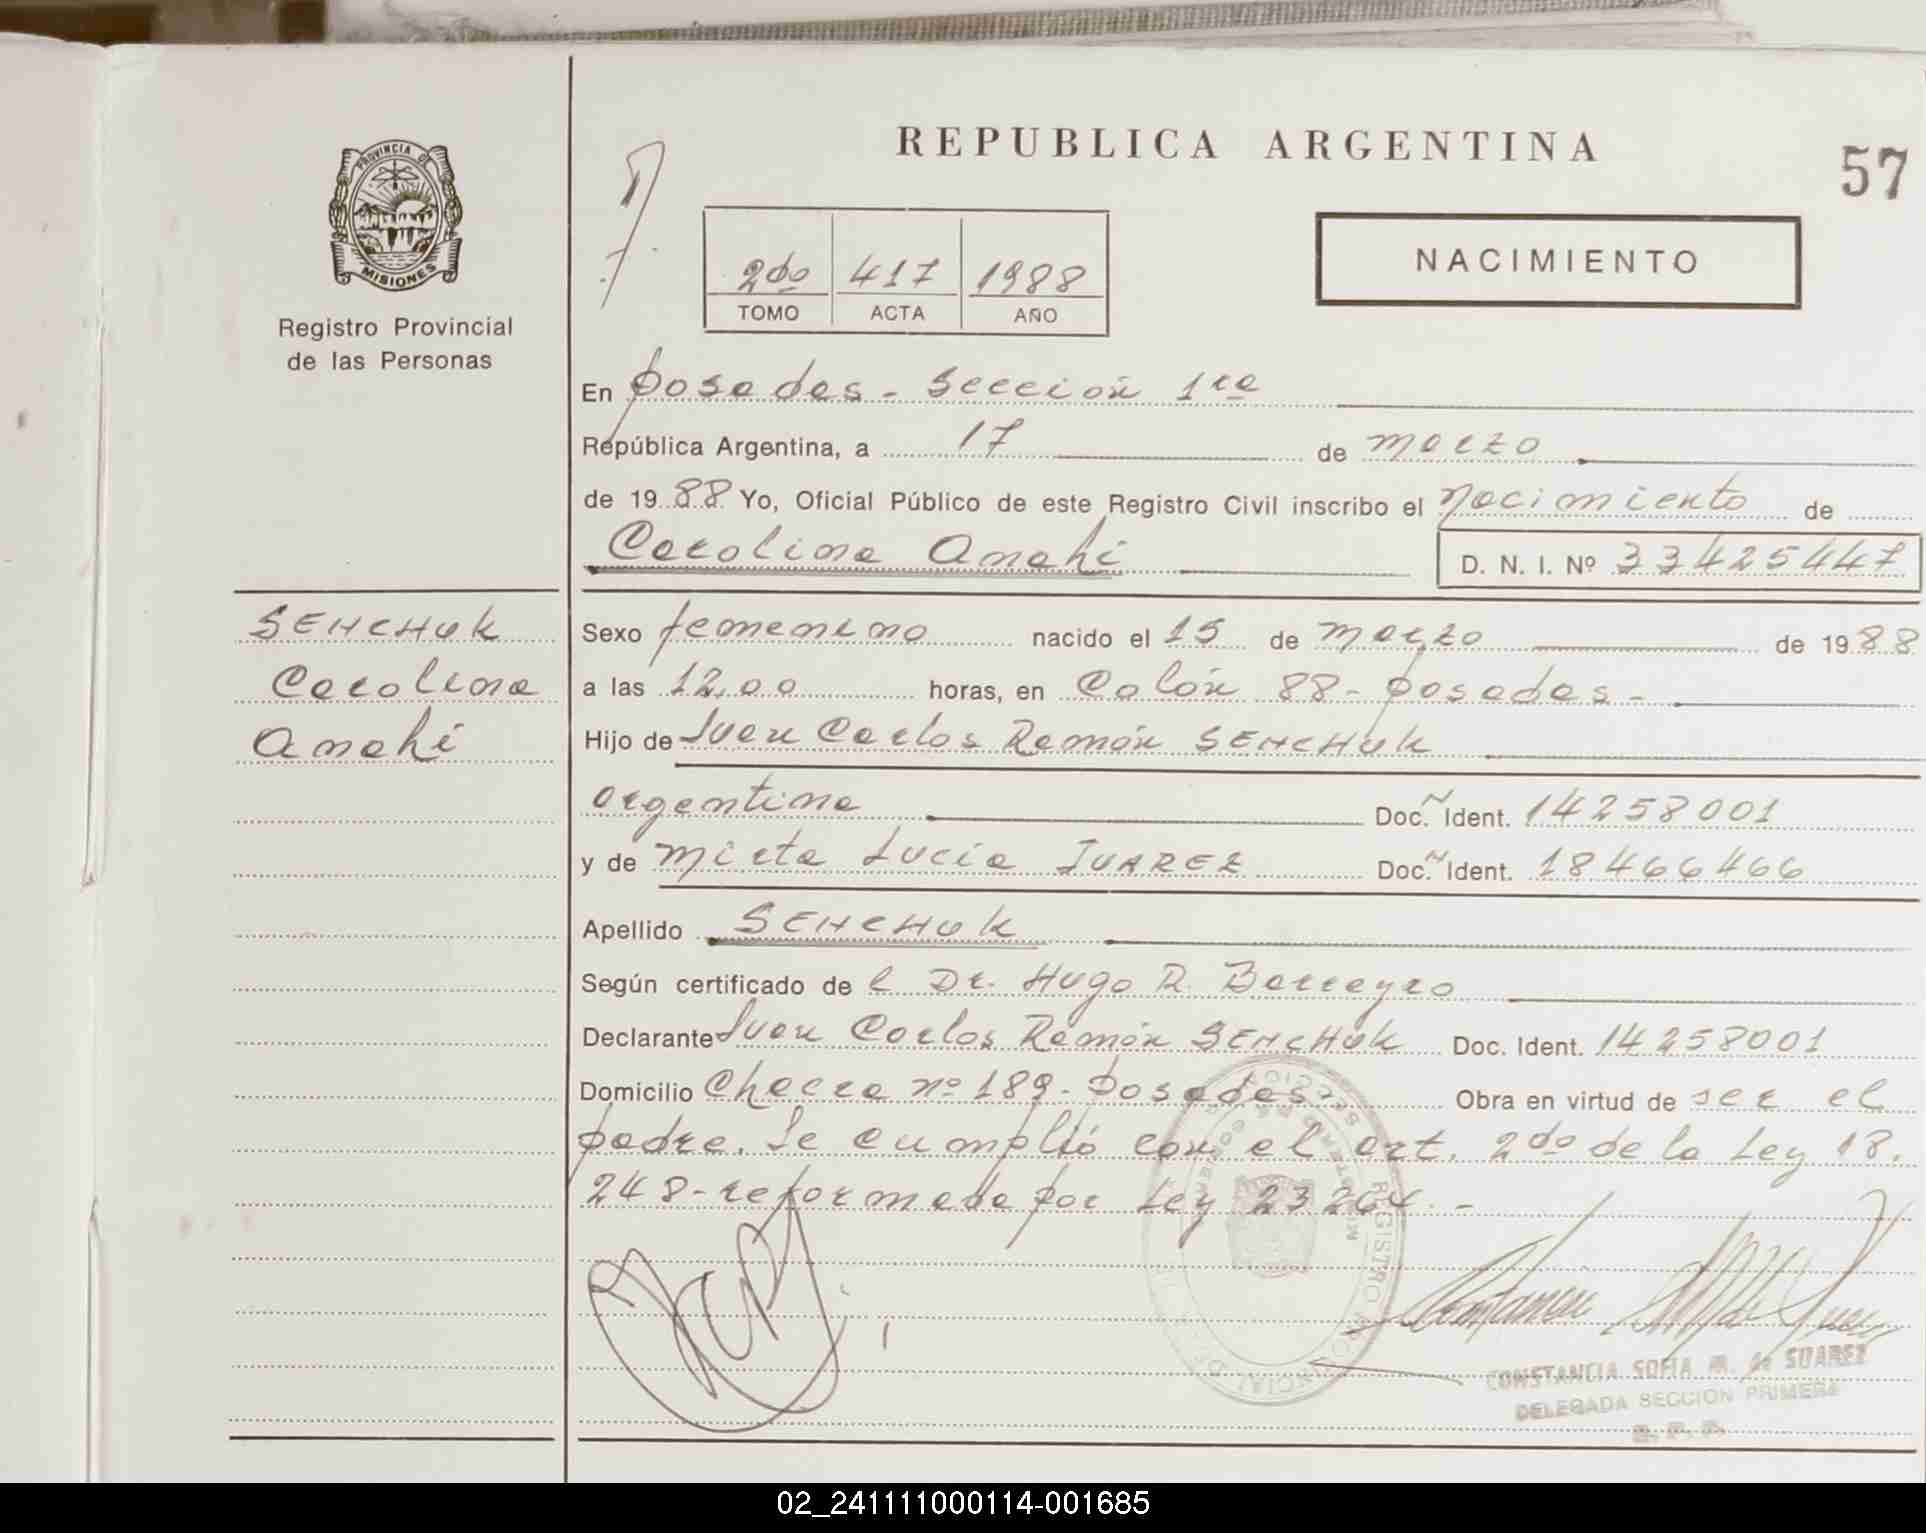 REPUBLICA ARGENTINA
57
PROVINCIA DE
MISIONES
Registro Provincial
de las Personas
2do 417 1988
TOMO ACTA AÑO
NACIMIENTO
En Posadas - Sección 1ra
República Argentina, a 17 de marzo
de 1988 Yo, Oficial Público de este Registro Civil inscribo el Nacimiento de
Carolina Anahi D. N. I. Nº 33425447
SENCHUK
Carolina
Anahi
Sexo femenino nacido el 15 de marzo de 1988
a las 12,00 horas, en Colón 88 - Posadas -
Hijo de Juan Carlos Ramón SENCHUK
argentina Doc. Ident. 14258001
y de Mirta Lucía JUAREZ Doc. Ident. 18466466
Apellido SENCHUK
Según certificado de l Dr. Hugo R. Barreyro
Declarante Juan Carlos Ramón SENCHUK Doc. Ident. 14258001
Domicilio Chacra nº 189 - Posadas - Obra en virtud de ser el
padre. Se cumplió con el art. 2do de la Ley 18.
248 - reformada por Ley 23264. -
REGISTRO PROVINCIAL DE
CONSTANCIA SOFIA M. de SUAREZ
DELEGADA SECCION PRIMERA
R. P. P.
02_241111000114-001685